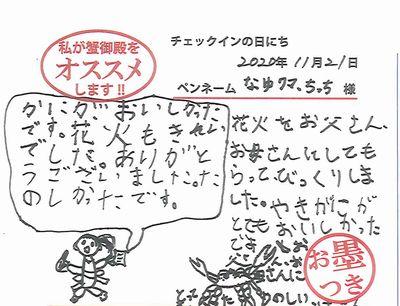 私が蟹御殿を
オススメ
します!!
チェックインの日にち
2020年11月21日
ペンネーム なゆクマ、ちっち 様
かにが、おいしかった
です。花火もきれい
でした。ありがと
うございました。た
のしかったです。
花火をお父さん、
お母さんにしても
らって、びっくりしま
した。やきがにが
とてもおいしかった
ですよ
お墨
つき